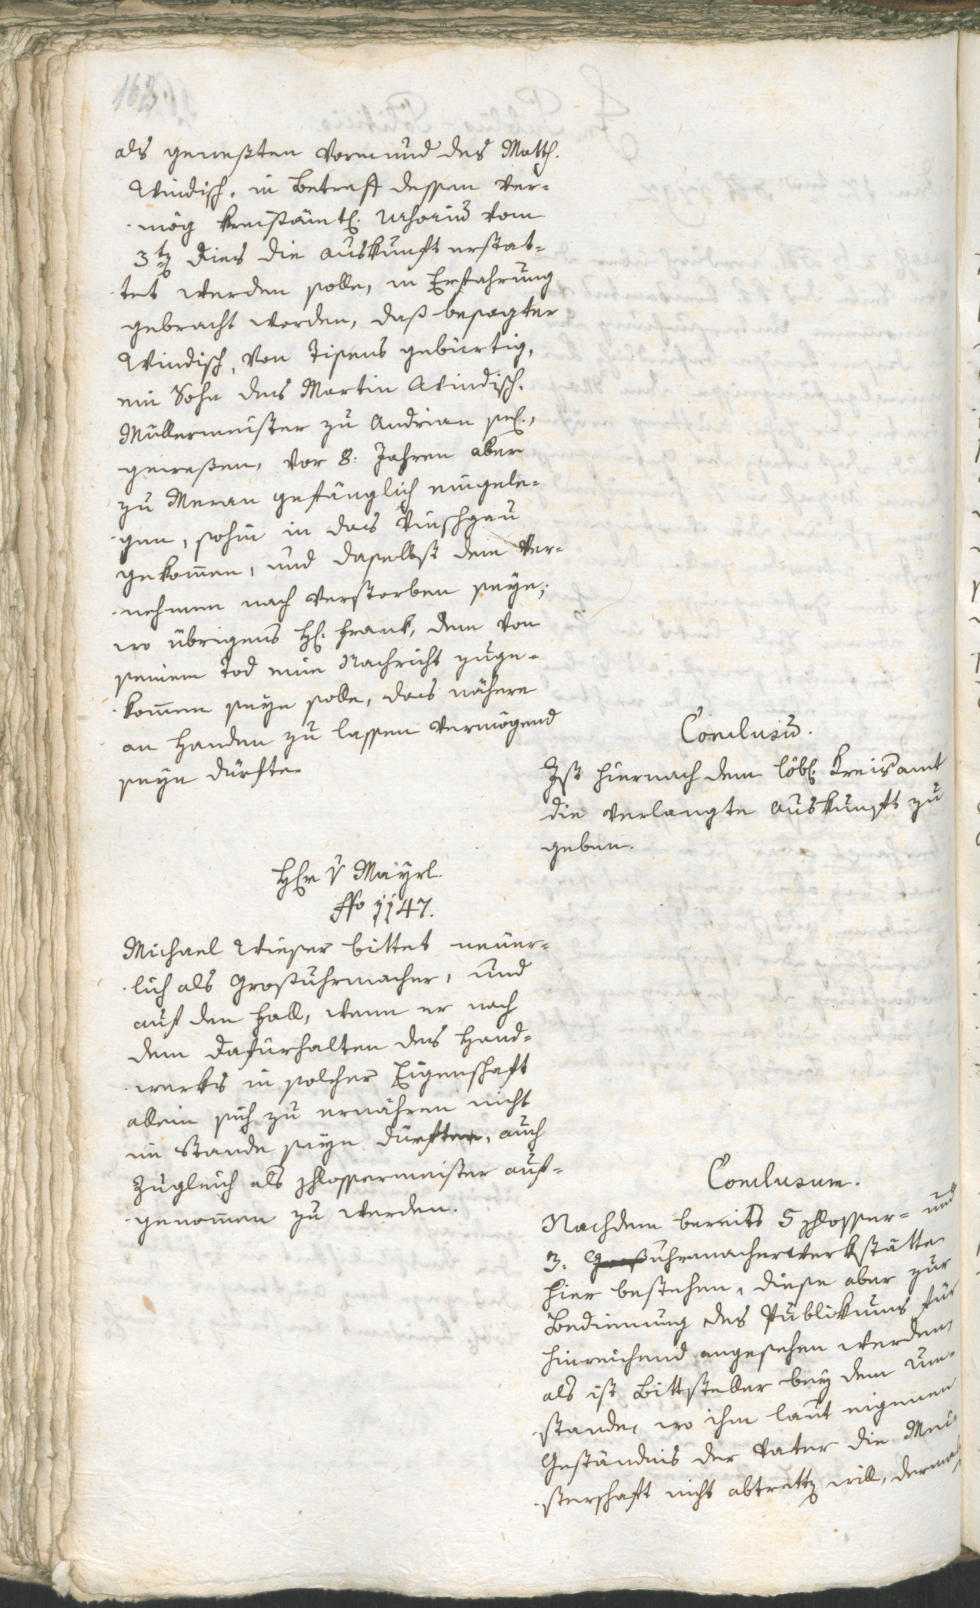 163.
als gewesten Vormund des Math.
Windisch, in Betreff dessen ver-
mög kreisämtl. Ursorium vom
3ten dies die Auskunft erstat-
tet werden solle, in Erfahrung
gebracht worden, daß besagter
Windisch, von Tisens gebürtig,
ein Sohn des Martin Windisch,
Müllermeister zu Andrian sel.,
gewesen, vor 8: Jahren aber
zu Meran gefänglich eingele-
gen, sohin in das Vinschgau
gekomen, und daselbst dem Ver-
nehmen nach verstorben seye;
wo übrigens H: Frank, dem von
seinem Tod eine Nachricht zuge-
komen seyn solle, das nähere
an Handen zu lassen vermögend
seyn dürfte.
Conclusum.
Ist hiernach dem löbl. Kreisamt
die verlangte Auskunft zu
geben.
Hr v Mayrl.
No 1147.
Michael Wieser bittet neuer-
lich als Großuhrmacher, und
auf den Fall, wenn er nach
dem Dafürhalten des Hand-
werks in solcher Eigenschaft
allein sich zu ernähren nicht
im Stande seyn dürfte, auch
zugleich als Schlossermeister auf-
genomen zu werden.
Conclusum.
Nachdem bereits 5 Schlosser- und
3. Großuhrmacherwerkstätte
hier bestehen, diese aber zur
Bedienung des Publikums für
hinreichend angesehen werden,
als ist Bittsteller bey dem Um-
stande, wo ihm laut eigenen
Geständnis der Vater die Mei-
sterschaft nicht abtretten will, dermal